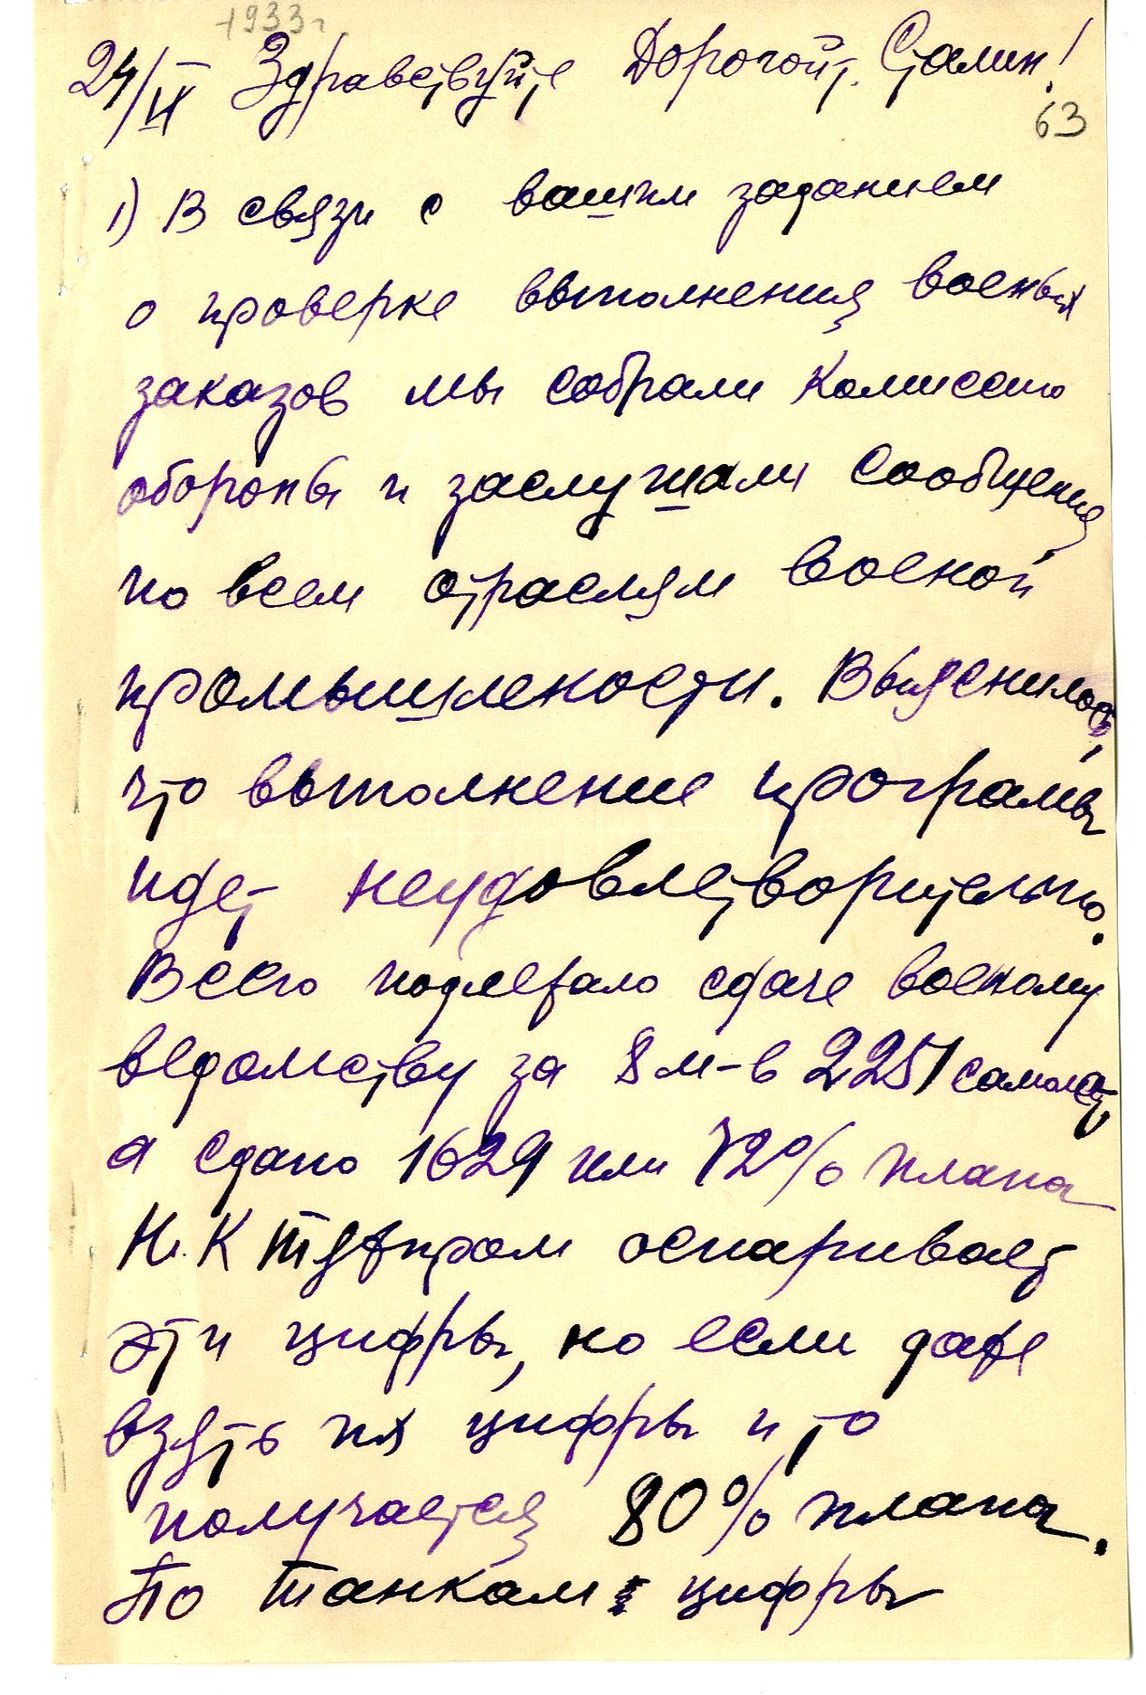 1933г
24/IX Здравствуйте Дорогой т. Сталин!
63
1) В связи с вашим заданием
о проверке выполнения военых
заказов мы собрали Комиссию
обороны и заслушали сообщения
по всем отраслям военой
промышлености. Выяснилось,
что выполнение програмы
идет неудовлетворительно.
Всего подлежало сдаче военому
ведомству за 8 м-в 2251 самолет,
а сдано 1629 или 72% плана
Н.К Тяжпром оспаривает
эти цифры, но если даже
взять их цифры и то
получается 80% плана.
По танкам цифры